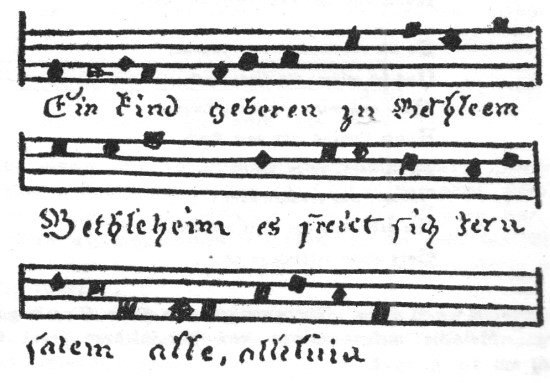 Ein kind geboren zu Bethleem
Bethleheim es freiet sich Jeru
salem alle, alleluia